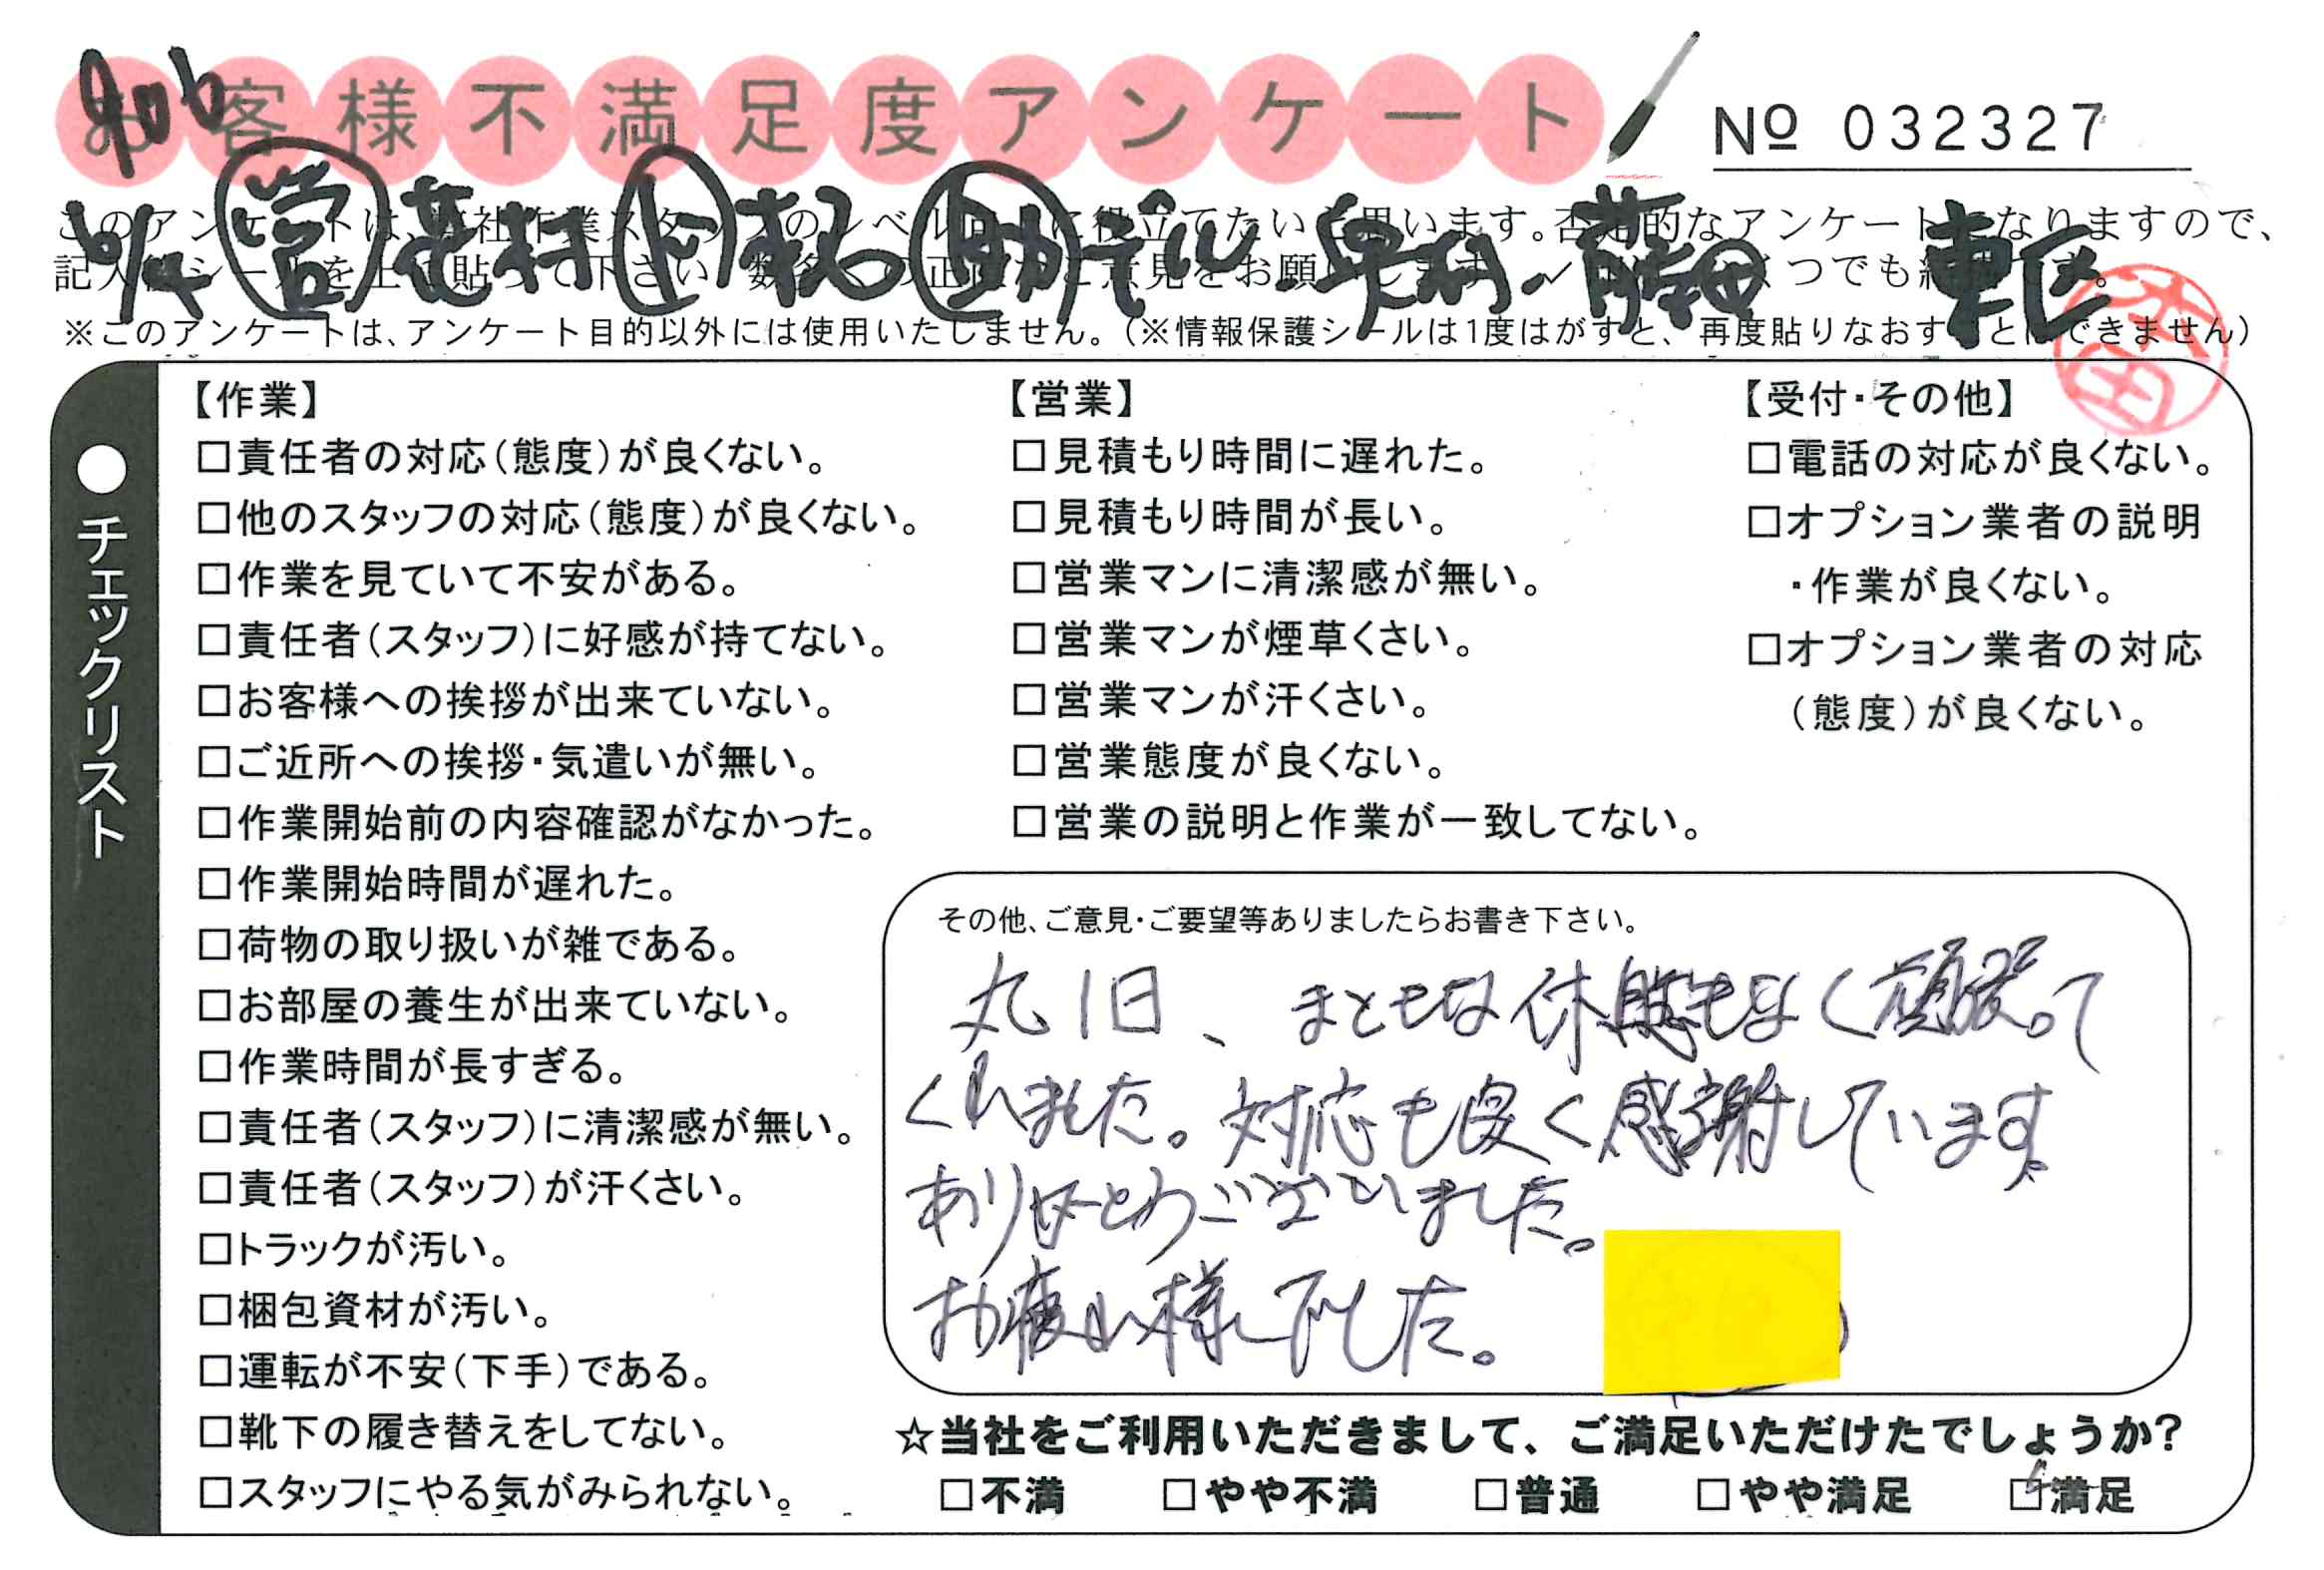 906
お客様不満足度アンケート
№ 032327
10/4 営 花村 上 本石 助 デル 早村 藤田 東区
このアンケートは、当社作業スタッフのレベル向上に役立てたいと思います。否定的なアンケートになりますので、
記入後シールを上に貼って下さい。
※このアンケートは、アンケート目的以外には使用いたしません。(※情報保護シールは1度はがすと、再度貼りなおすことはできません)
本田
●チェックリスト
【作業】
□責任者の対応(態度)が良くない。
□他のスタッフの対応(態度)が良くない。
□作業を見ていて不安がある。
□責任者(スタッフ)に好感が持てない。
□お客様への挨拶が出来ていない。
□ご近所への挨拶・気遣いが無い。
□作業開始前の内容確認がなかった。
□作業開始時間が遅れた。
□荷物の取り扱いが雑である。
□お部屋の養生が出来ていない。
□作業時間が長すぎる。
□責任者(スタッフ)に清潔感が無い。
□責任者(スタッフ)が汗くさい。
□トラックが汚い。
□梱包資材が汚い。
□運転が不安(下手)である。
□靴下の履き替えをしてない。
□スタッフにやる気がみられない。
【営業】
□見積もり時間に遅れた。
□見積もり時間が長い。
□営業マンに清潔感が無い。
□営業マンが煙草くさい。
□営業マンが汗くさい。
□営業態度が良くない。
□営業の説明と作業が一致してない。
【受付・その他】
□電話の対応が良くない。
□オプション業者の説明
・作業が良くない。
□オプション業者の対応
(態度)が良くない。
その他、ご意見・ご要望等ありましたらお書き下さい。
丸1日、まともな休憩もなく頑張って
くれました。対応も良く感謝しています。
ありがとうございました。
お疲れ様でした。
☆当社をご利用いただきまして、ご満足いただけたでしょうか?
□不満 □やや不満 □普通 □やや満足 ☑満足